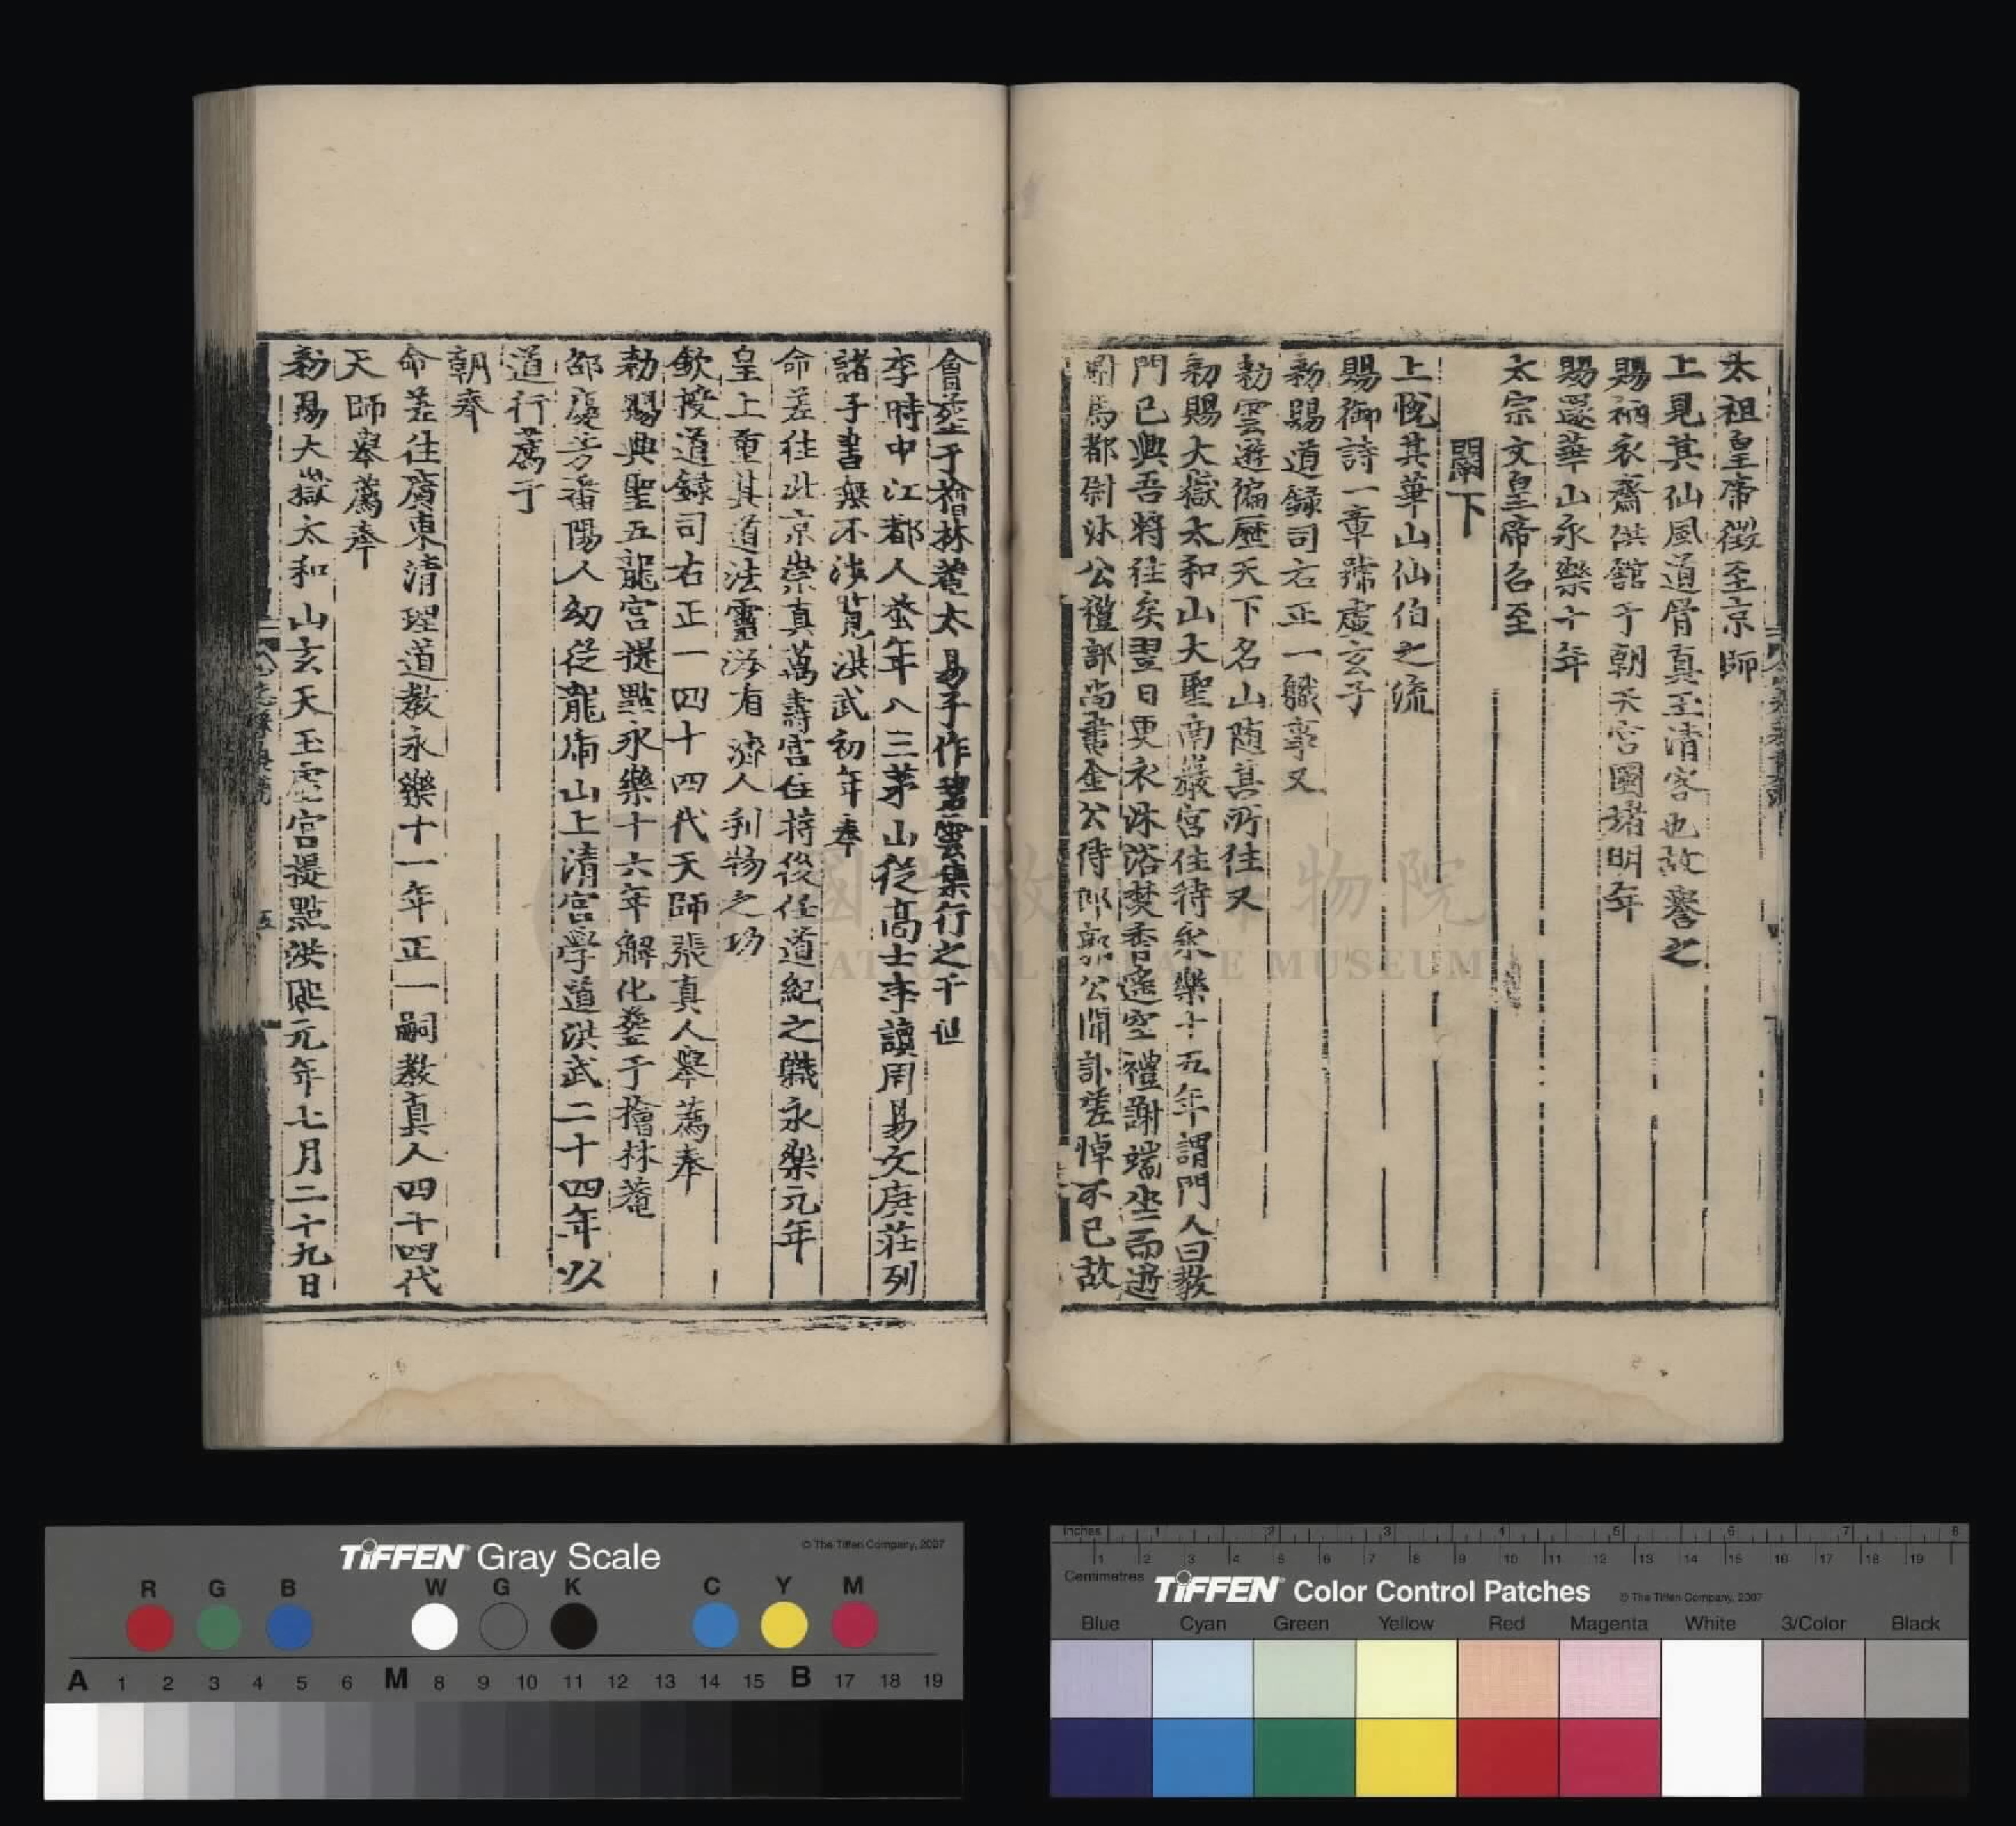 太祖皇帝徵至京師
上見其仙風道骨真玉清客也故譽之
賜衲衣齋供館于朝天宮圜堵明年
賜還華山永樂十年
太宗文皇帝召至
闕下
上悅其華山仙伯之流
賜御詩一章號虛玄子
勑賜道錄司右正一職事又
勑雲遊徧歷天下名山隨其所往又
勑賜大嶽太和山大聖南巖宮住持永樂十五年謂門人曰教
門已興吾將往矣翌日更衣沐浴焚香遙空禮謝端坐而逝
駙馬都尉沐公禮部尚書金公侍郎郭公聞訃嗟悼不已故
會塟于檜林菴太易子作碧雲集行之于世
李時中江都人登年八三茅山從高士李讀周易文庚莊列
諸子書無不涉覽洪武初年奉
命差往北京崇真萬壽宮住持後任道紀之職永樂元年
皇上重其道法靈渉有濟人利物之功
欽授道錄司右正一四十四代天師張真人舉薦奉
勑賜興聖五龍宮提點永樂十六年解化塟于檜林菴
邵慶芳番陽人幼從龍虎山上清宮學道洪武二十四年以
道行薦于
朝奉
命差往廣東清理道教永樂十一年正一嗣教真人四十四代
天師舉薦奉
勑賜大嶽太和山玄天玉虛宮提點洪熙元年七月二十九日
五
國立故宮博物院
NATIONAL PALACE MUSEUM
TIFFEN Gray Scale
© The Tiffen Company, 2007
R G B W G K C Y M
A 1 2 3 4 5 6 M 8 9 10 11 12 13 14 15 B 17 18 19
Inches 1 2 3 4 5 6 7 8
1 2 3 4 5 6 7 8 9 10 11 12 13 14 15 16 17 18 19
Centimetres
TIFFEN Color Control Patches
© The Tiffen Company, 2007
Blue Cyan Green Yellow Red Magenta White 3/Color Black